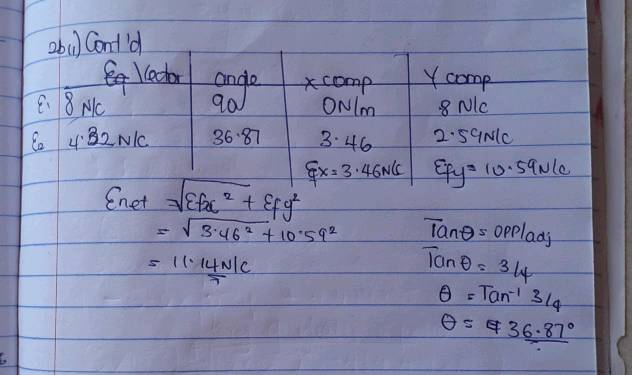 2b(i) Cont'd
Eq Vector angle x comp Y comp
E₁ 8 N/C 90 0N/m 8 N/c
E₂ 4.32 N/C 36.87 3.46 2.59N/c
Σfx = 3.46N/C Σfy = 10.59 N/c
Enet = √Σfx² + Σfy²
= √3.46² + 10.59²
= 11.14N/C
Tanθ = OPP/adj
Tanθ = 3/4
θ = Tan⁻¹ 3/4
θ = 36.87°